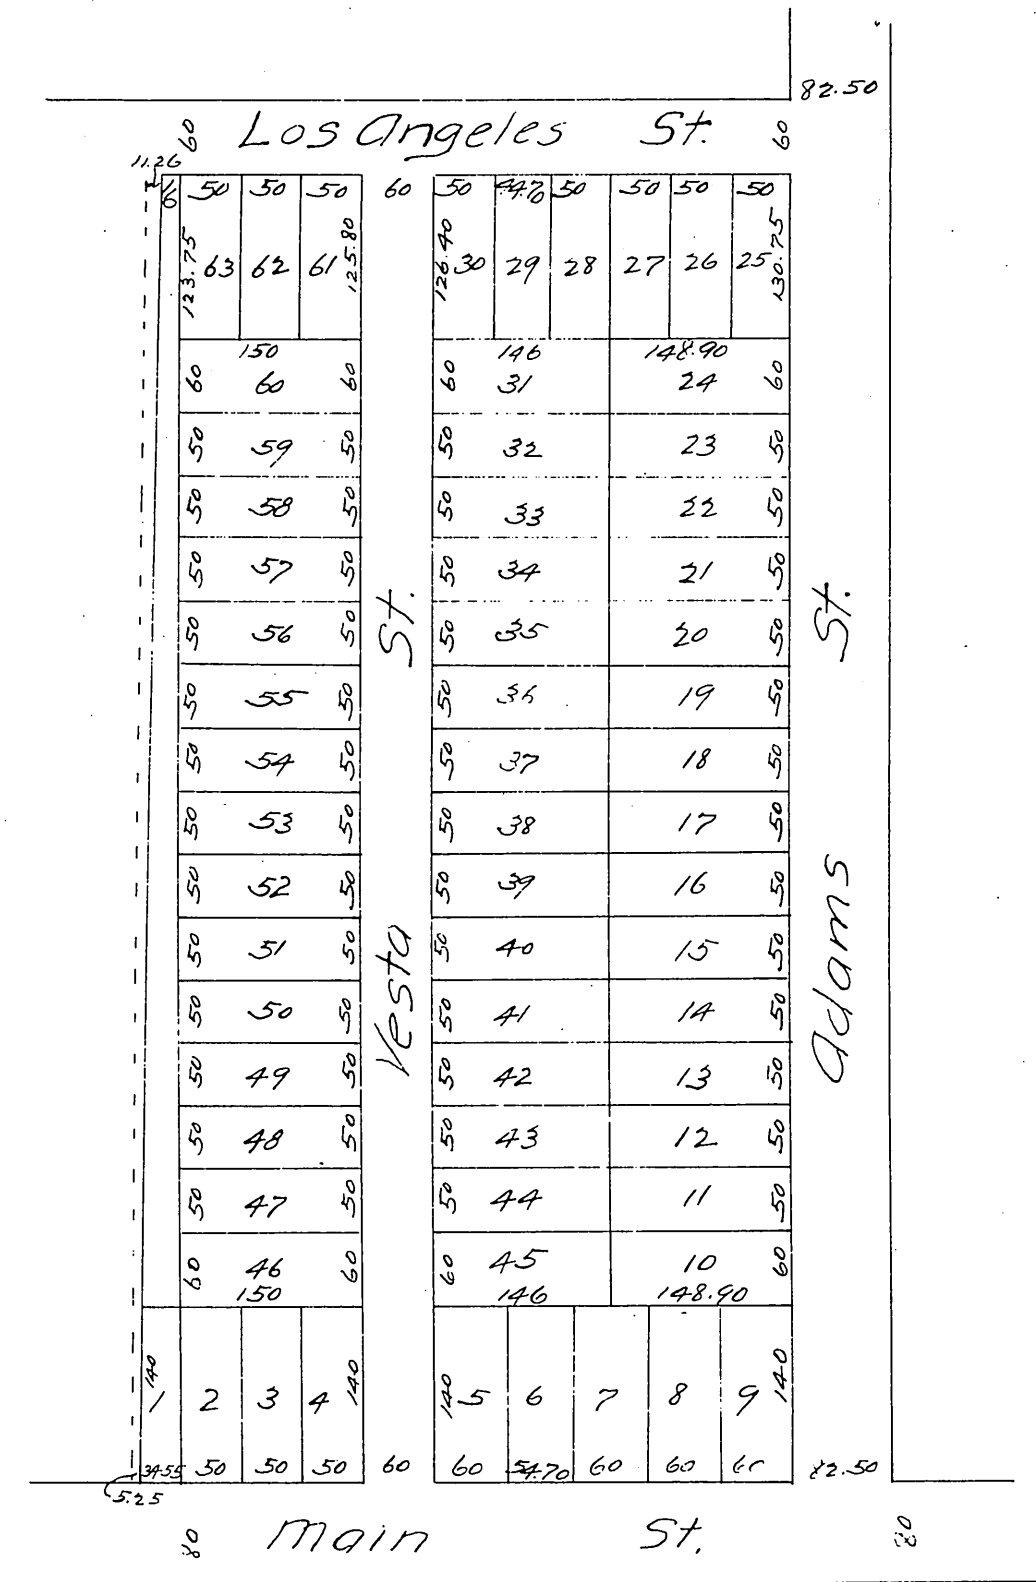 82.50
60 Los Angeles St. 60
11.26
16 50 50 50 60 50 44.70 50 50 50 50
123.75 63 62 61 125.80 126.40 30 29 28 27 26 25 130.75
150 146 148.90
60 60 60 60 31 24 60
50 59 50 50 32 23 50
50 58 50 50 33 22 50
50 57 50 50 34 21 50
50 56 50 50 35 20 50
50 55 50 50 36 19 50
50 54 50 50 37 18 50
50 53 50 50 38 17 50
50 52 50 50 39 16 50
50 51 50 50 40 15 50
50 50 50 50 41 14 50
50 49 50 50 42 13 50
50 48 50 50 43 12 50
50 47 50 50 44 11 50
60 46 60 60 45 10 60
150 146 148.90
Vesta St.
Adams St.
140 1 2 3 4 140 140 5 6 7 8 9 140
34.55 50 50 50 60 60 54.70 60 60 82.50
5.25
80 Main St. 80